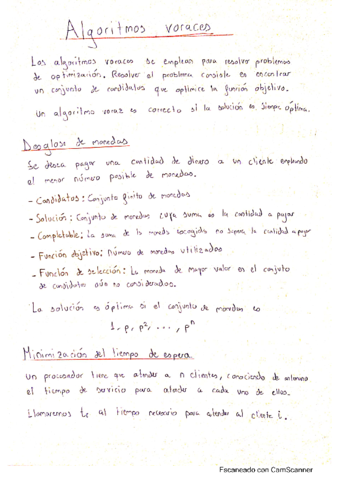 Algoritmos voraces
Los algoritmos voraces se emplean para resolver problemas
de optimización. Resolver el problema consiste en encontrar
un conjunto de candidatos que optimice la función objetivo.
Un algoritmo voraz es correcto si la solución es siempre óptima.
Desglose de monedas
Se desea pagar una cantidad de dinero a un cliente empleando
el menor número posible de monedas.
- Candidatos: Conjunto finito de monedas
- Solución: Conjunto de monedas cuya suma es la cantidad a pagar
- Completable: La suma de las monedas escogidas no supera la cantidad a pagar
- Función objetivo: Número de monedas utilizadas
- Función de selección: La moneda de mayor valor en el conjunto
de candidatos aún no considerados.
La solución es óptima si el conjunto de monedas es
1, p, p², ..., pⁿ
Minimización del tiempo de espera
Un procesador tiene que atender a n clientes, conociendo de antemano
el tiempo de servicio para atender a cada uno de ellos.
Llamaremos tᵢ al tiempo necesario para atender al cliente i.
Escaneado con CamScanner